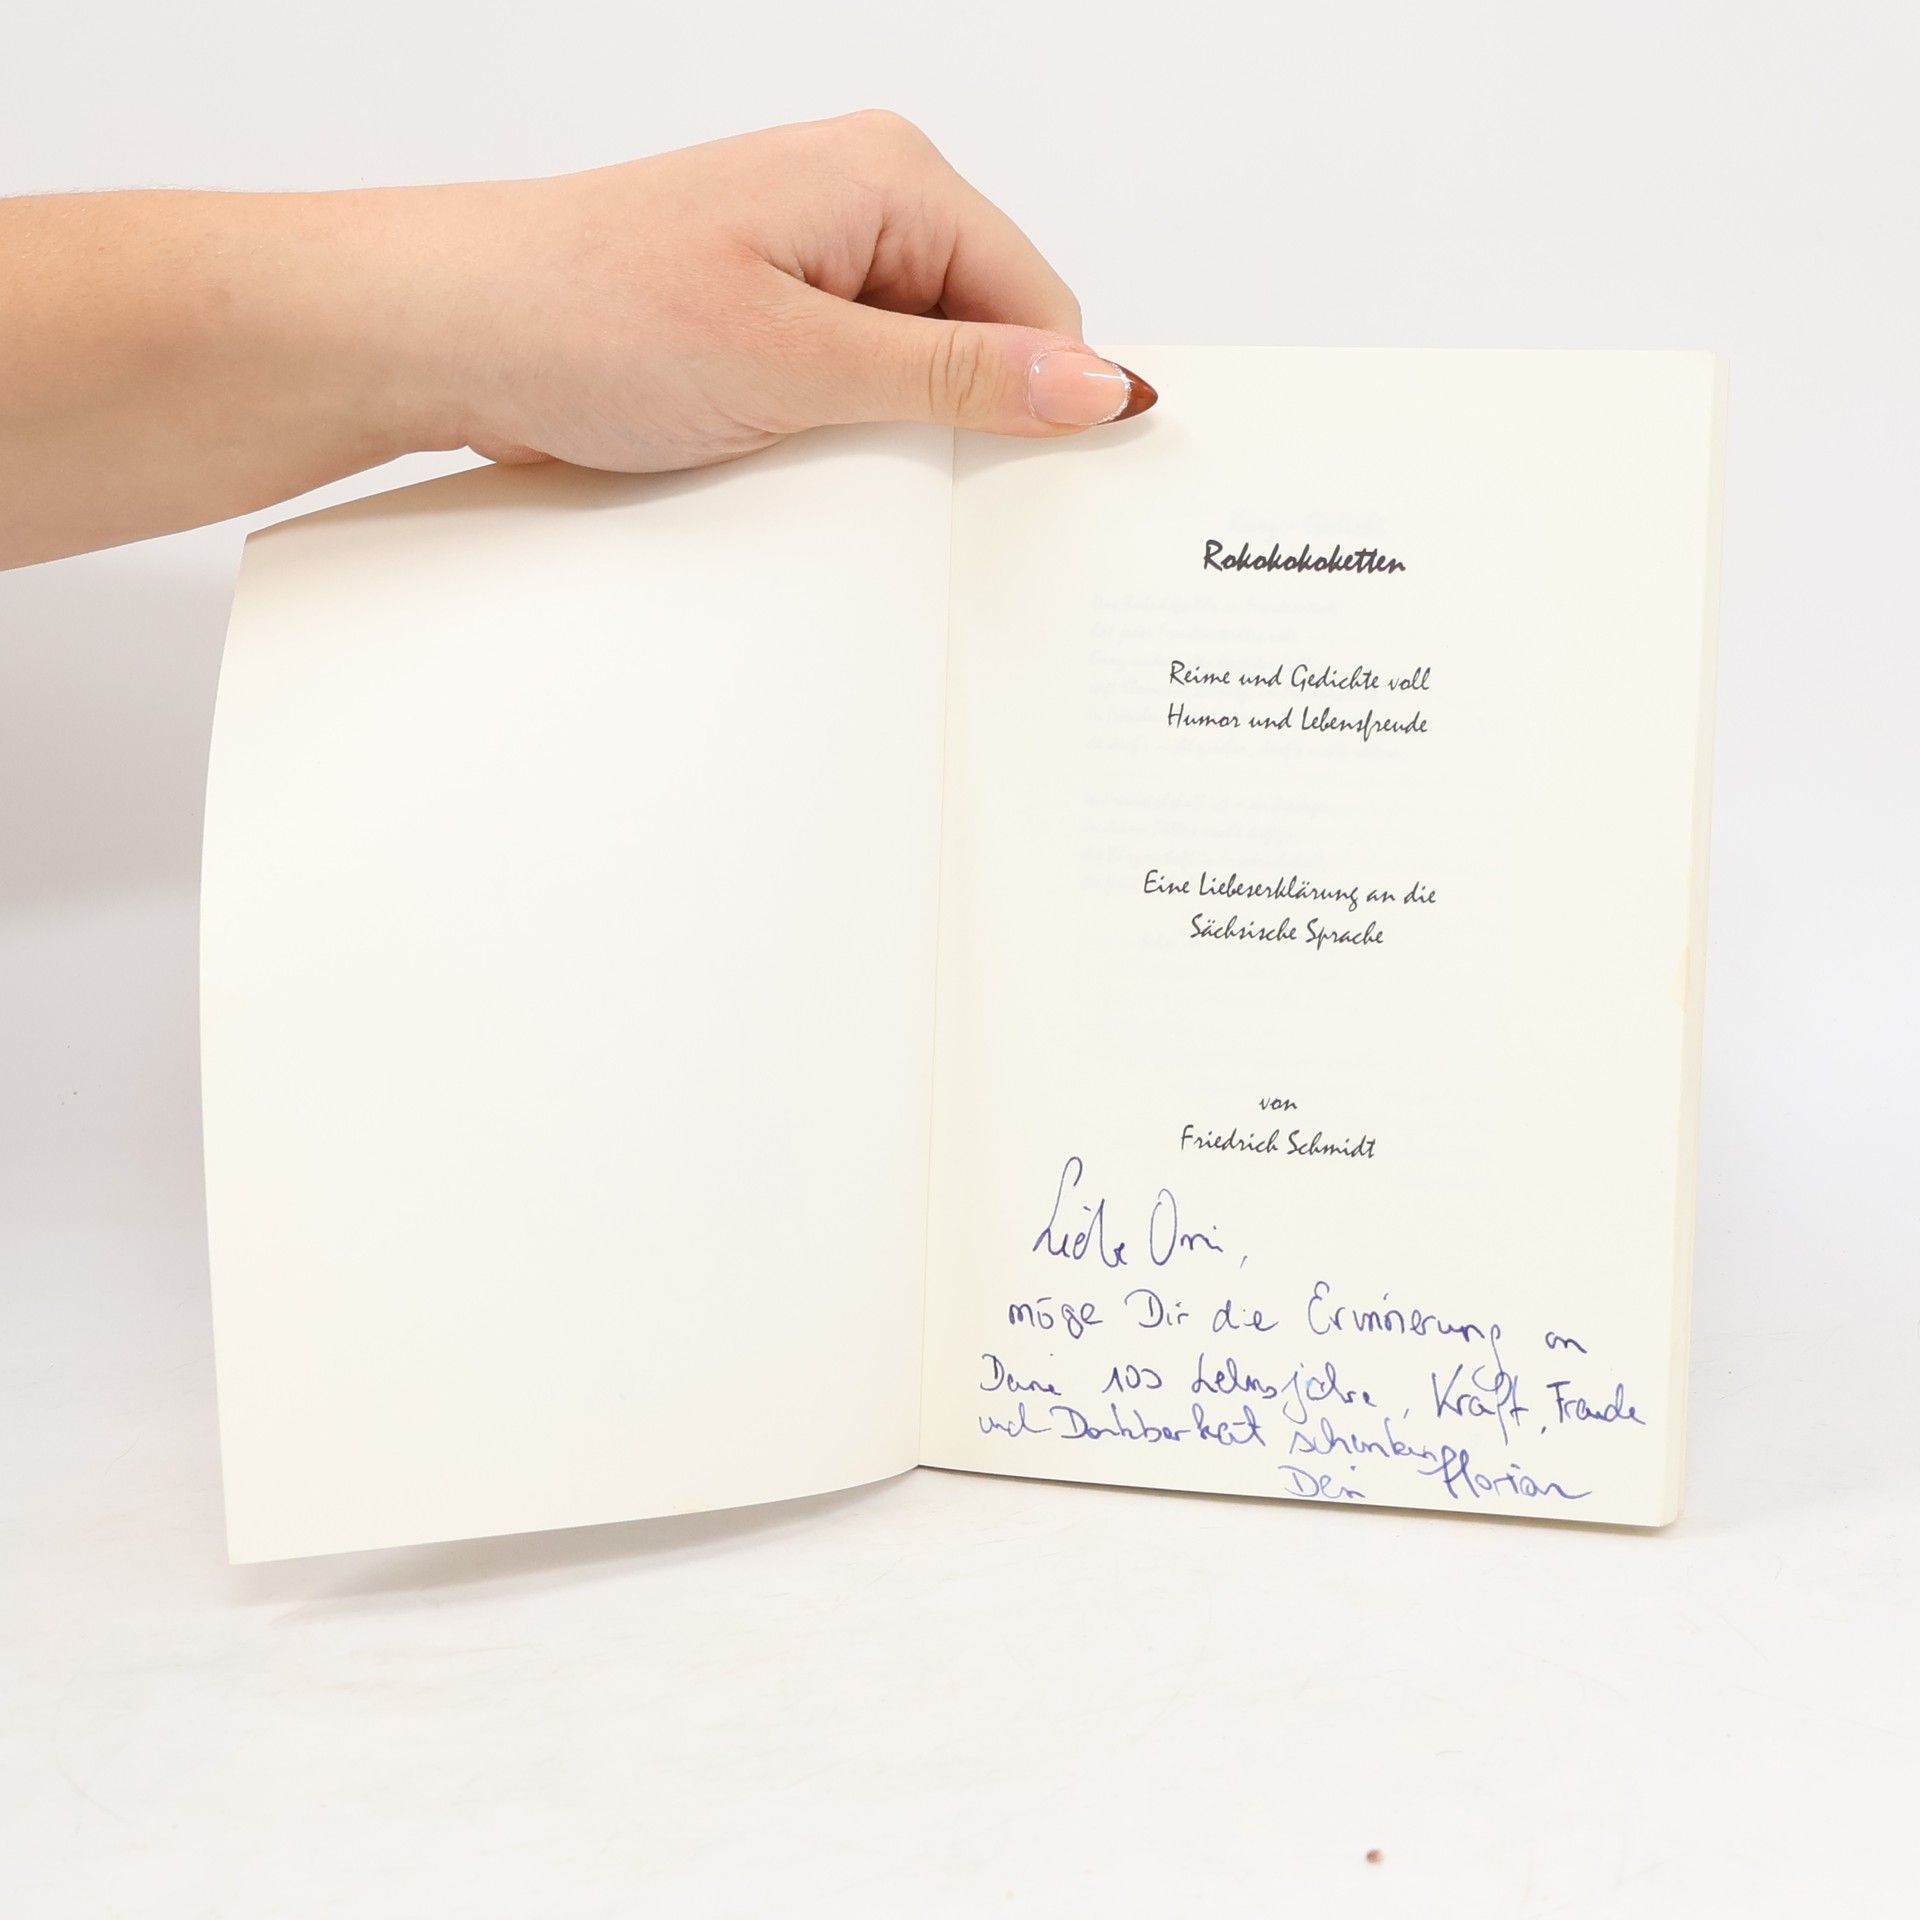 Rokokokoketten
Reime und Gedichte voll
Humor und Lebensfreude
Eine Liebeserklärung an die
Sächsische Sprache
von
Friedrich Schmidt
Liebe Omi,
möge Dir die Erinnerung an
Deine 100 Lebensjahre, Kraft, Freude
und Dankbarkeit schenken
Dein Florian